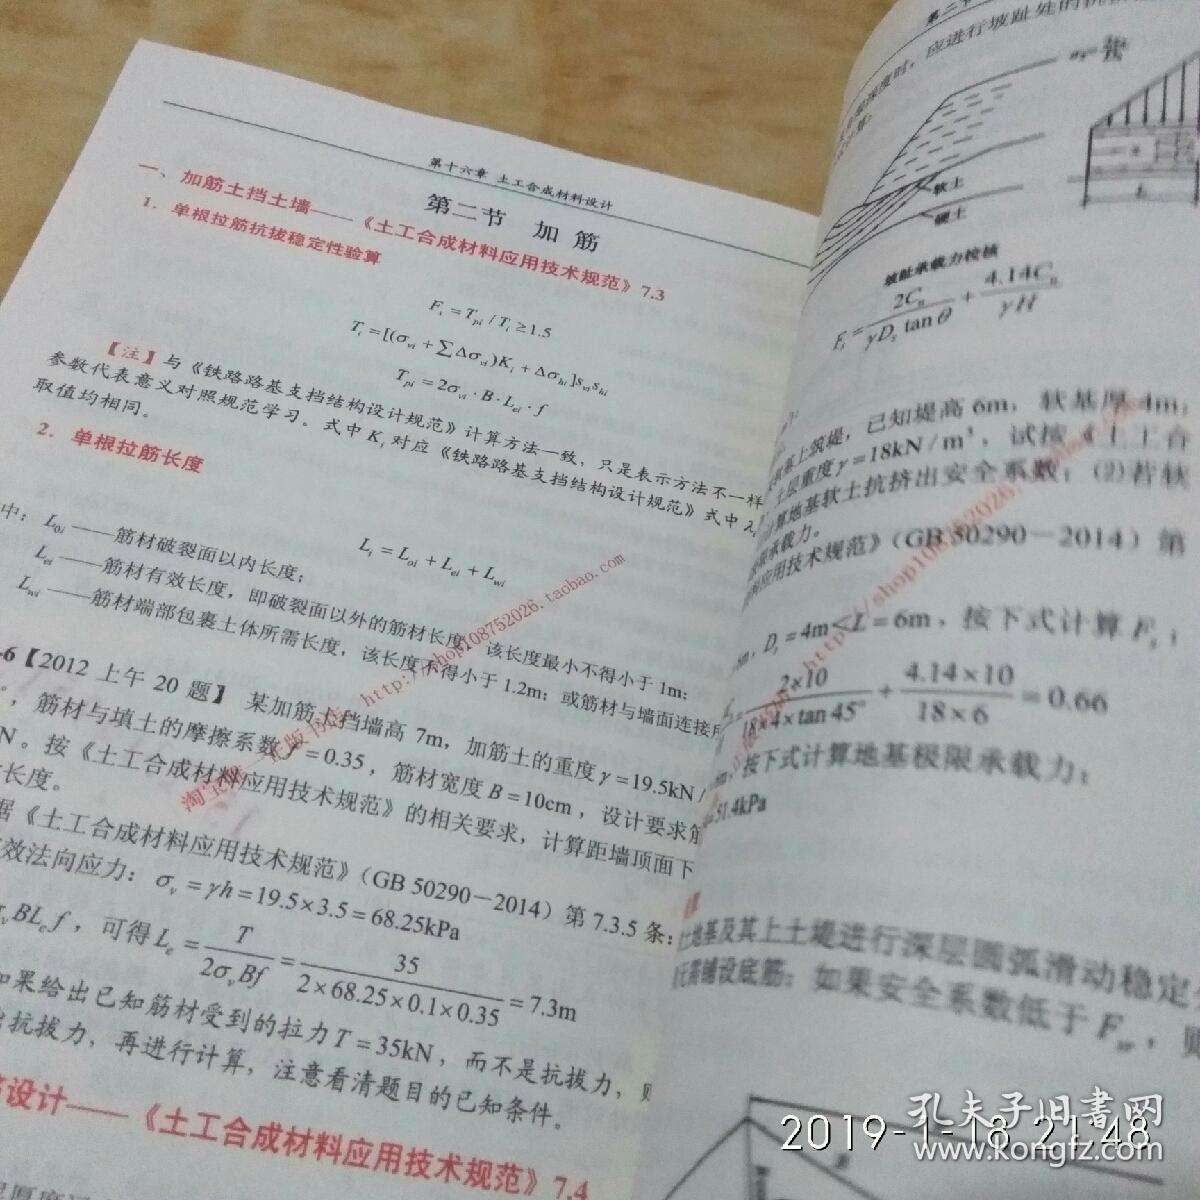 第十六章 土工合成材料设计
第二节 加筋
一、加筋土挡土墙——《土工合成材料应用技术规范》7.3
1. 单根拉筋抗拔稳定性验算
F_s = T_pi / T_i ≥ 1.5
T_i = [(σ_vi + ∑Δσ_vi)K_i + Δσ_hi]s_vi s_hi
T_pi = 2σ_vi · B · L_ei · f
【注】与《铁路路基支挡结构设计规范》计算方法一致，只是表示方法不一样
参数代表意义对照规范学习。式中K_i对应《铁路路基支挡结构设计规范》式中λ_i
取值均相同。
2. 单根拉筋长度
L_i = L_0i + L_ei + L_wi
中：L_0i——筋材破裂面以内长度；
L_ei——筋材有效长度，即破裂面以外的筋材长度，该长度最小不得小于1m；
L_wi——筋材端部包裹土体所需长度，该长度不得小于1.2m；或筋材与墙面连接所
-6【2012上午20题】 某加筋土挡墙高7m，加筋土的重度γ=19.5kN/
，筋材与填土的摩擦系数f=0.35，筋材宽度B=10cm，设计要求筋
N。按《土工合成材料应用技术规范》的相关要求，计算距墙顶面下
长度。
据《土工合成材料应用技术规范》（GB 50290—2014）第7.3.5条：
效法向应力：σ_v = γh = 19.5×3.5 = 68.25kPa
σ_v BL_e f，可得L_e = T / 2σ_v Bf = 35 / 2×68.25×0.1×0.35 = 7.3m
如果给出已知筋材受到的拉力T=35kN，而不是抗拔力，则
抗拔力，再进行计算，注意看清题目的已知条件。
设计——《土工合成材料应用技术规范》7.4
应进行坡趾处的
软土
硬土
坡趾承载力校核
F_s = 2C_u / γD_s tanθ + 4.14C_u / γH
上筑堤，已知堤高6m，软基厚4m，
重度γ=18kN/m³，试按《土工合
计算地基软土抗挤出安全系数；(2)若软
承载力。
应用技术规范》（GB 50290—2014）第
D_s=4m<L=6m，按下式计算F_s：
2×10 / 18×4×tan45° + 4.14×10 / 18×6 = 0.66
按下式计算地基极限承载力：
51.4kPa
地基及其上土堤进行深层圆弧滑动稳定
铺设底筋；如果安全系数低于F_sr，则
http://shop108752026.taobao.com
2019-1-18 21:48
孔夫子旧书网
www.kongfz.com